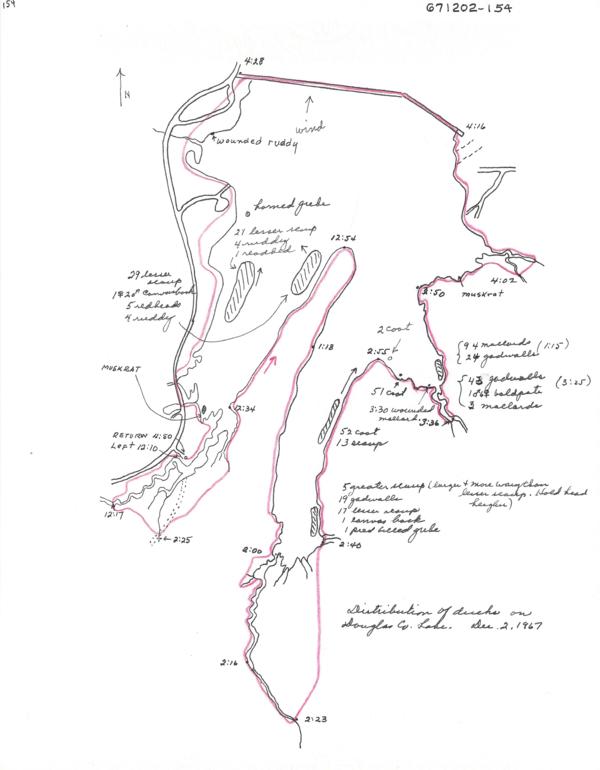 159
671202-154
4:28
N
wind
4:16
wounded ruddy
horned grebe
21 lesser scaup
4 ruddy
1 redhead
12:54
29 lesser
scaup
5 redheads
4 ruddy
4:02
2:50
muskrat
1:18
2 coot
2:55
94 mallards (1:15)
24 gadwalls
43 gadwalls (3:25)
baldpate
3 mallards
MUSKRAT
12:34
51 coot
3:30 wounded
mallard
3:36
RETURN 4:50
Left 12:10
52 coot
13 scaup
5 greater scaup (larger & more wary than
lesser scaup. Hold head
higher)
19 gadwalls
17 lesser scaup
1 canvas back
1 pied billed grebe
12:17
2:25
2:00
2:40
Distribution of ducks on
Douglas Co. Lake. Dec. 2, 1967
2:16
2:23